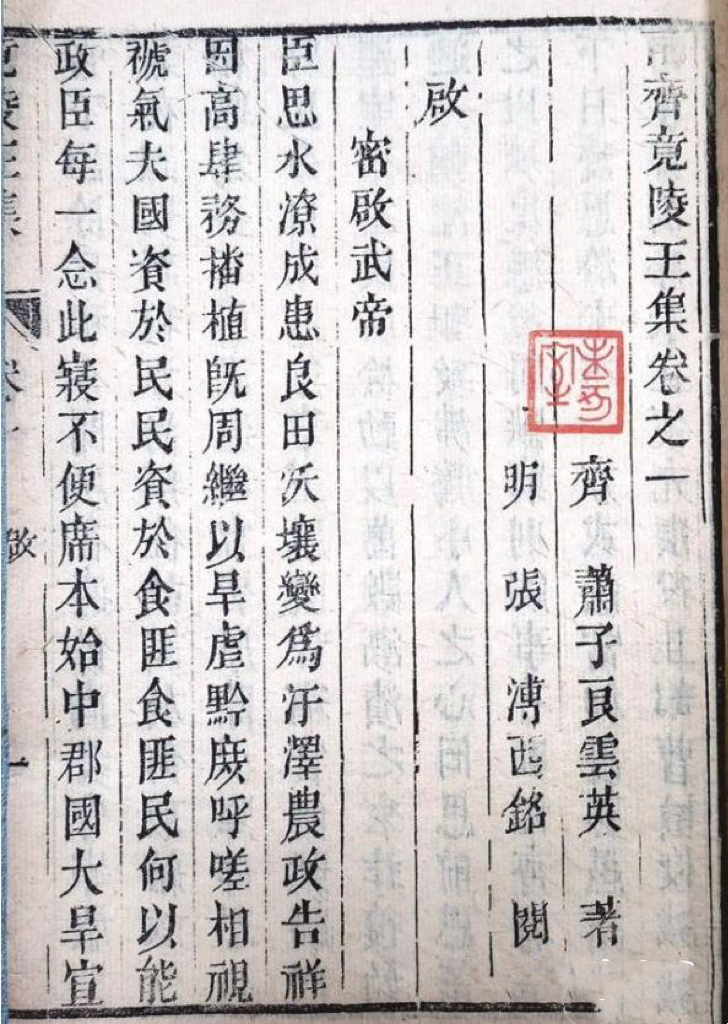 南齊竟陵王集卷之一
齊 蕭子良雲英 著
明 張溥西銘 閱
啟
密啟武帝
臣思水潦成患良田沃壤變爲汙澤農政告祥
因高肆務播植旣周繼以旱虐黔庶呼嗟相視
禠氣夫國資於民民資於食匪食匪民何以能
政臣每一念此寢不便席本始中郡國大旱宣
竟陵王集 卷一 啟 一